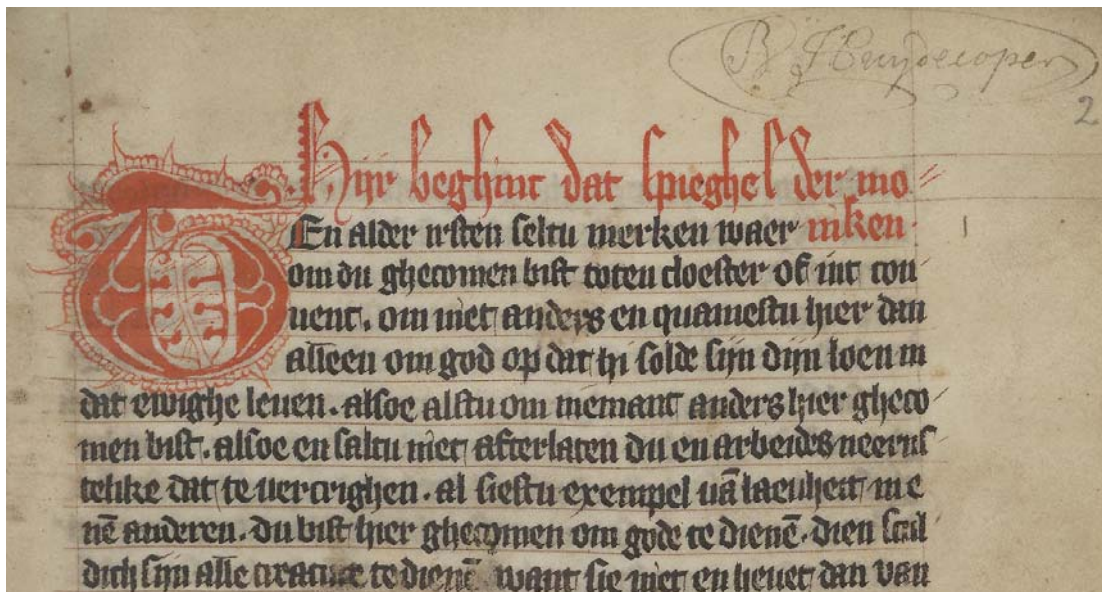 B Huydecoper
2
Hijr beghint dat spieghel der mo
niken.
TEn alder irsten seltu merken waer
om du ghecomen bist toten cloester of int con
uent. om niet anders en quamestu hier dan
alleen om god op dat hi solde sijn dijn loen in
dat ewighe leuen. alsoe alstu om niemant anders hier gheco
men bist. alsoe en saltu niet afterlaten du en arbeides neerns
telike dat te uercrighen. al siestu exempel uā laeuheit in e
nē anderen. du bist hier ghecomen om gode te dienē. dien scul
dich sijn alle creature te dienē want sie niet en heuet dan van